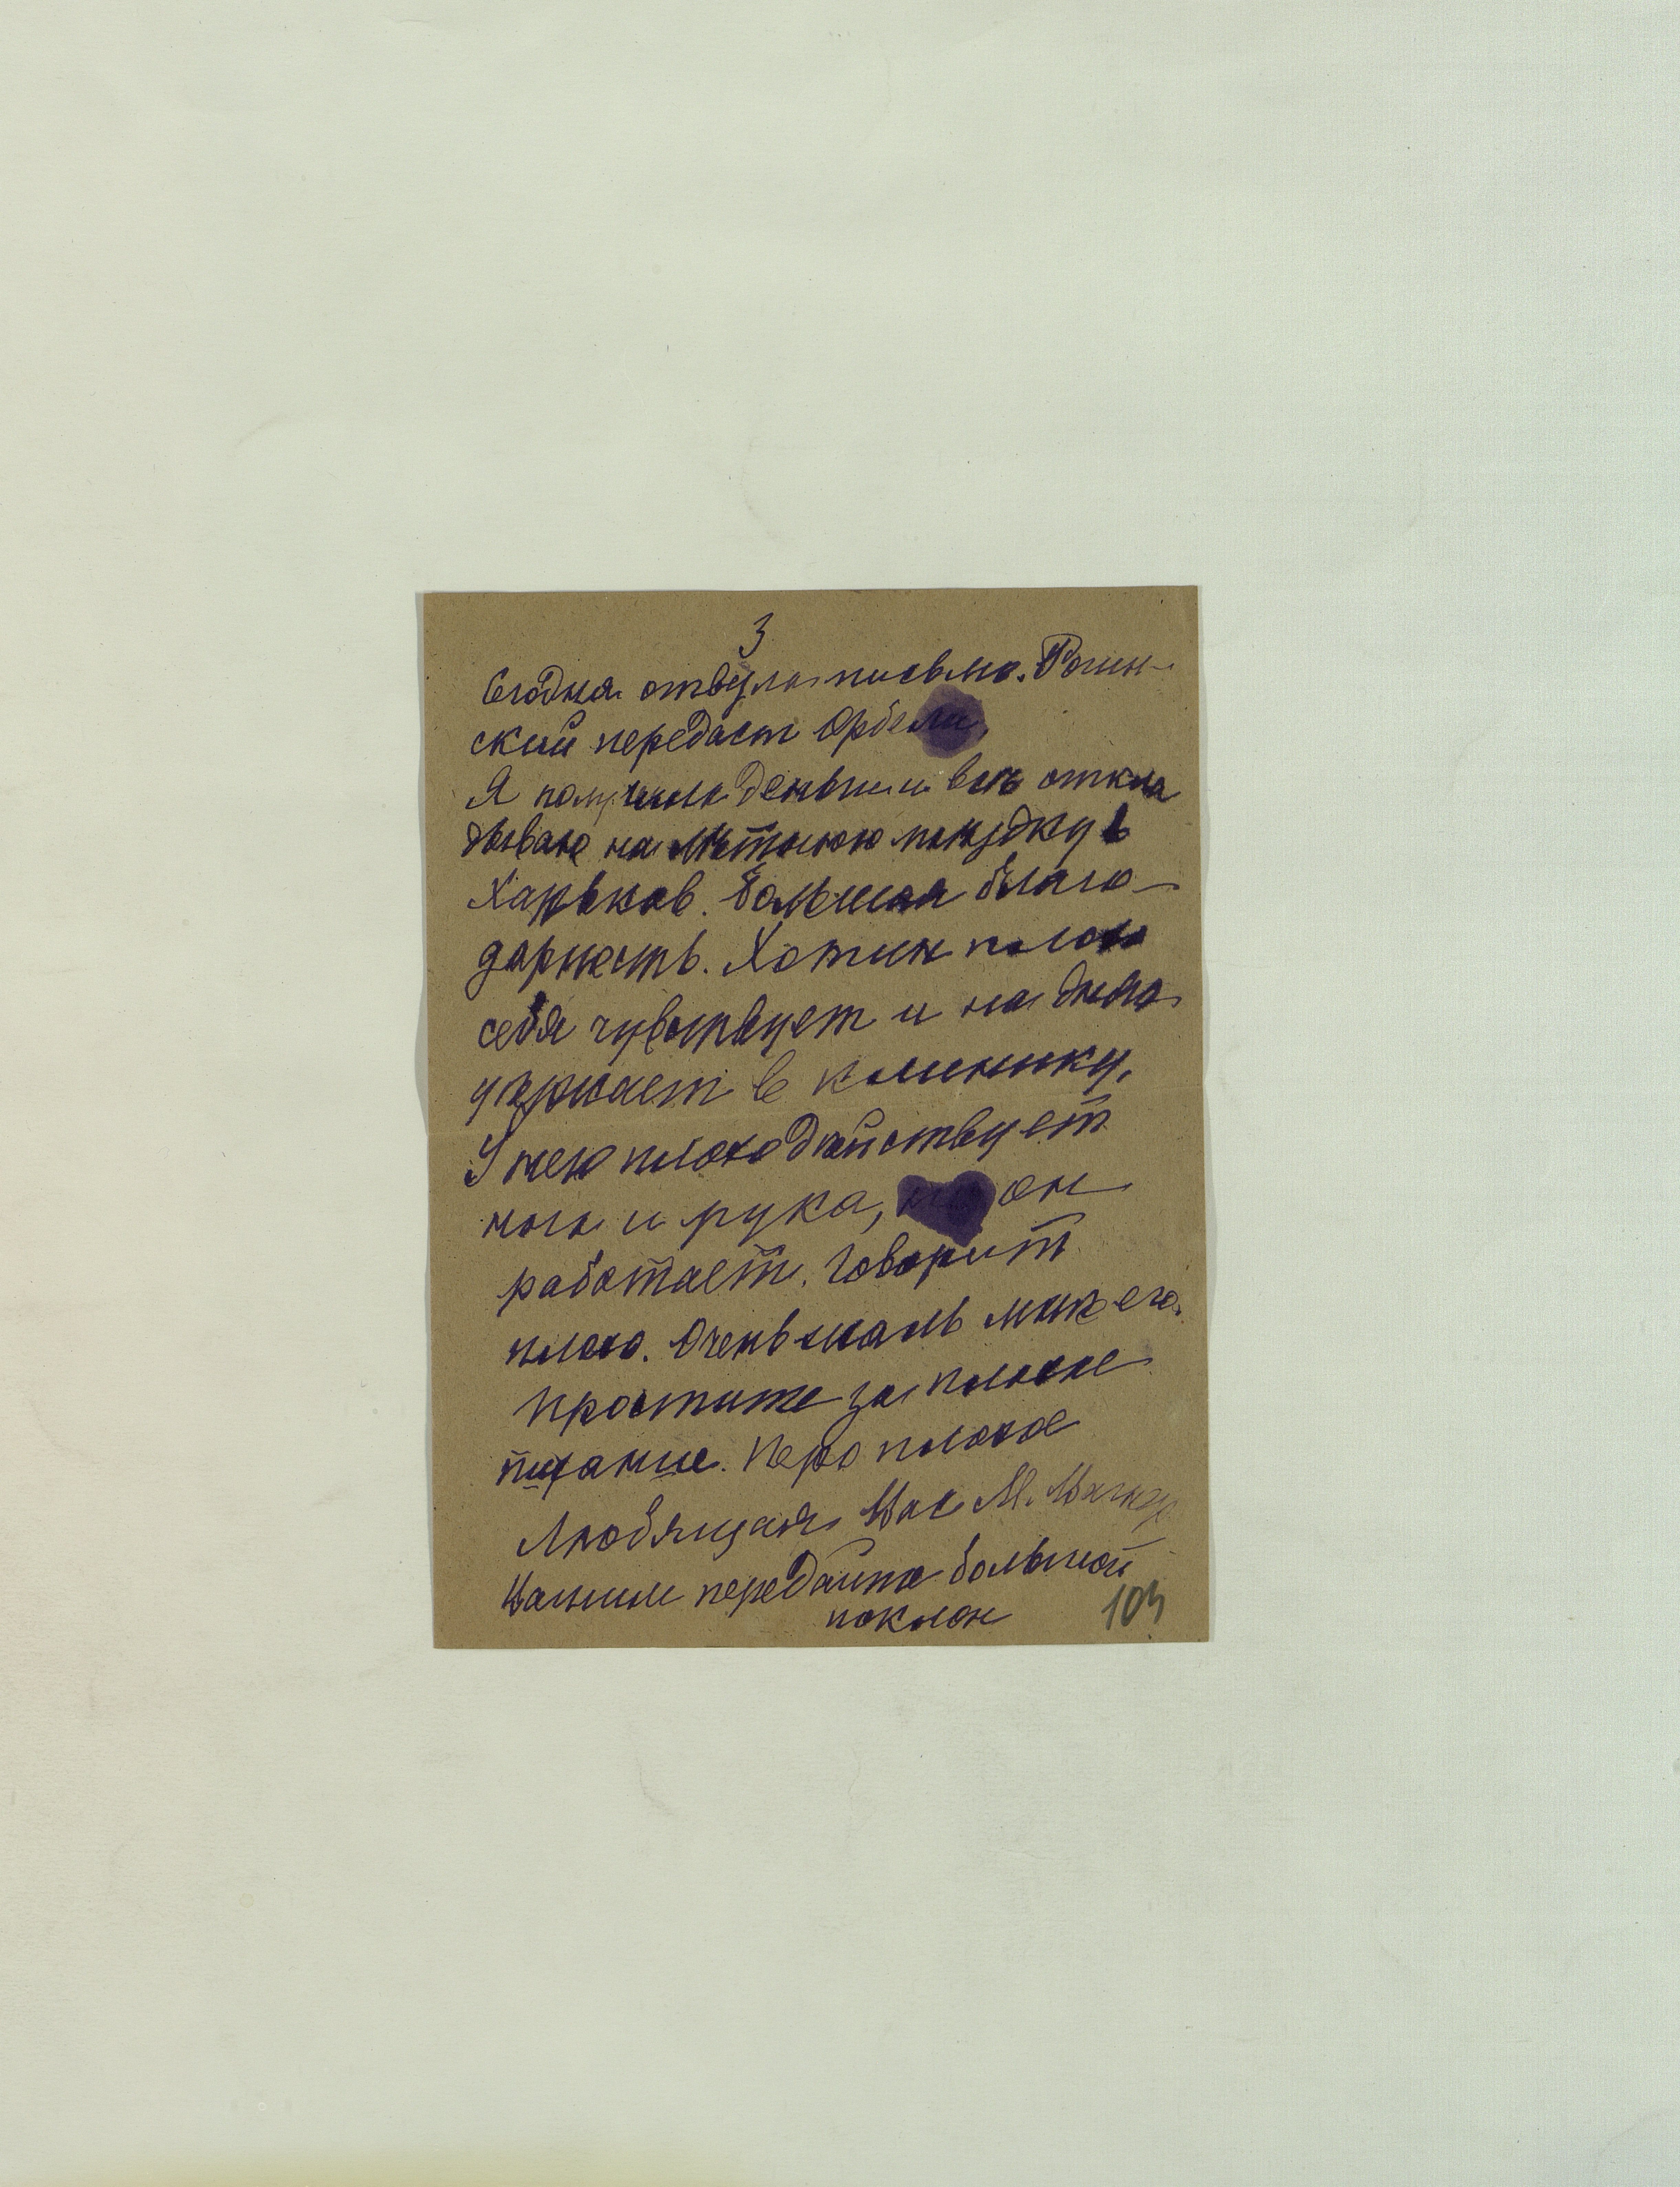 3
Сегодня отвезла письмо. Рогин-
ский передаст Орбели.
Я получила деньги и все откла
дываю на летнюю поездку в
Харьков. Большая благо-
дарность. Хотин плохо
себя чувствует и на днях
уезжает в клинику.
У него плохо действует
нога и рука, но он
работает. Говорит
плохо. Очень жаль мне его.
Простите за плохое
писание. Перо плохое
Любящая Вас М.
Вашим передайте большой
поклон
104